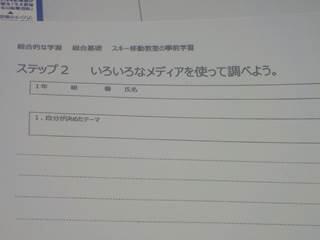 総合的な学習 総合基礎 スキー移動教室の事前学習
ステップ2 いろいろなメディアを使って調べよう。
1年 組 番 氏名
1.自分が決めたテーマ